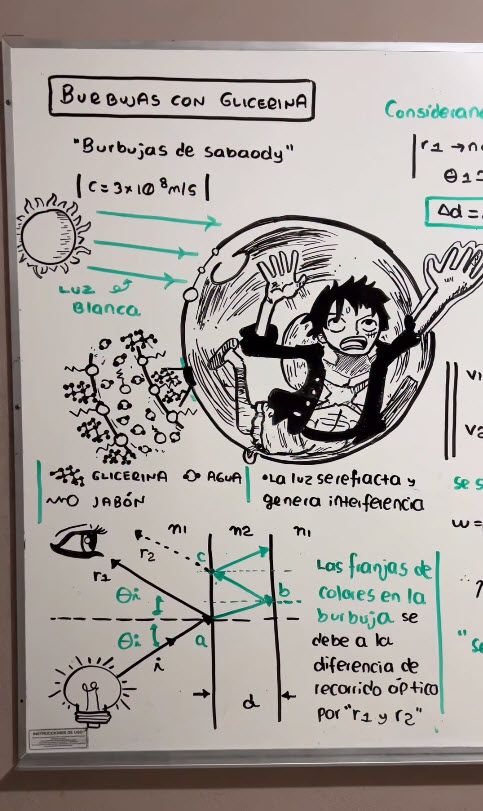 BURBUJAS CON GLICERINA
"Burbujas de sabaody"
C = 3×10⁸ m/s
Luz
Blanca
GLICERINA
AGUA
JABÓN
•La luz se refracta y
genera interferencia
n1 n2 n1
r2
r1
c
b
θi
θi
a
i
d
Las franjas de
colores en la
burbuja se
debe a la
diferencia de
recorrido óptico
por "r1 y r2"
INSTRUCCIONES DE USO
r1 →
θ1
Δd =
v1
v2
se s
w=
"se